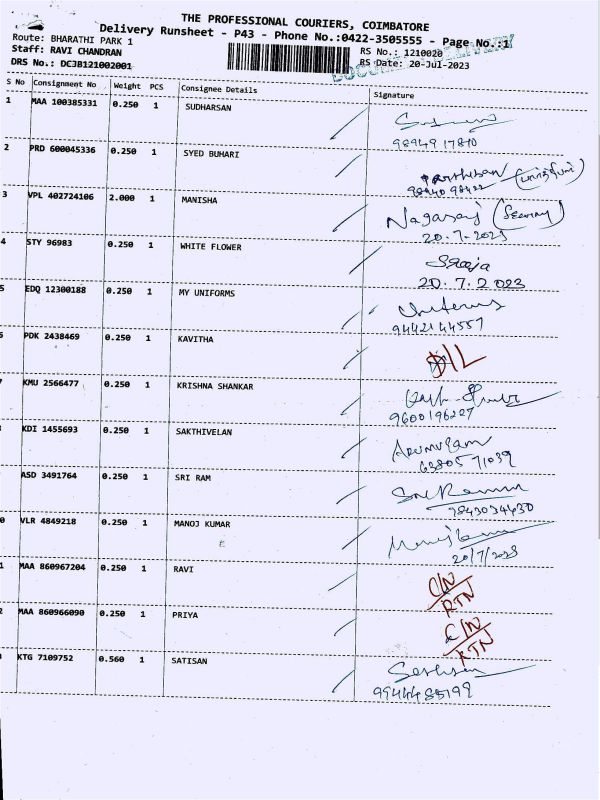 THE PROFESSIONAL COURIERS, COIMBATORE
Delivery Runsheet - P43 - Phone No.:0422-3505555 - Page No.:1
Route: BHARATHI PARK 1 RS No.: 1210020
Staff: RAVI CHANDRAN RS Date: 20-Jul-2023
DRS No.: DCJB121002001
S No Consignment No Weight PCS Consignee Details Signature
1 MAA 100385331 0.250 1 SUDHARSAN
9894917810
2 PRD 600045336 0.250 1 SYED BUHARI
3 VPL 402724106 2.000 1 MANISHA Nagaraj
20-7-2023
4 STY 96983 0.250 1 WHITE FLOWER Saroja
20.7.2023
5 EDQ 12300188 0.250 1 MY UNIFORMS Uniforms
9442144557
PDK 2438469 0.250 1 KAVITHA D/L
KMU 2566477 0.250 1 KRISHNA SHANKAR
9600196227
KDI 1455693 0.250 1 SAKTHIVELAN Arumugam
6380571039
ASD 3491764 0.250 1 SRI RAM Sri Ram
9843034430
0 VLR 4849218 0.250 1 MANOJ KUMAR
20/7/2023
1 MAA 860967204 0.250 1 RAVI C/N
RTN
2 MAA 860966090 0.250 1 PRIYA C/N
RTN
KTG 7109752 0.560 1 SATISAN